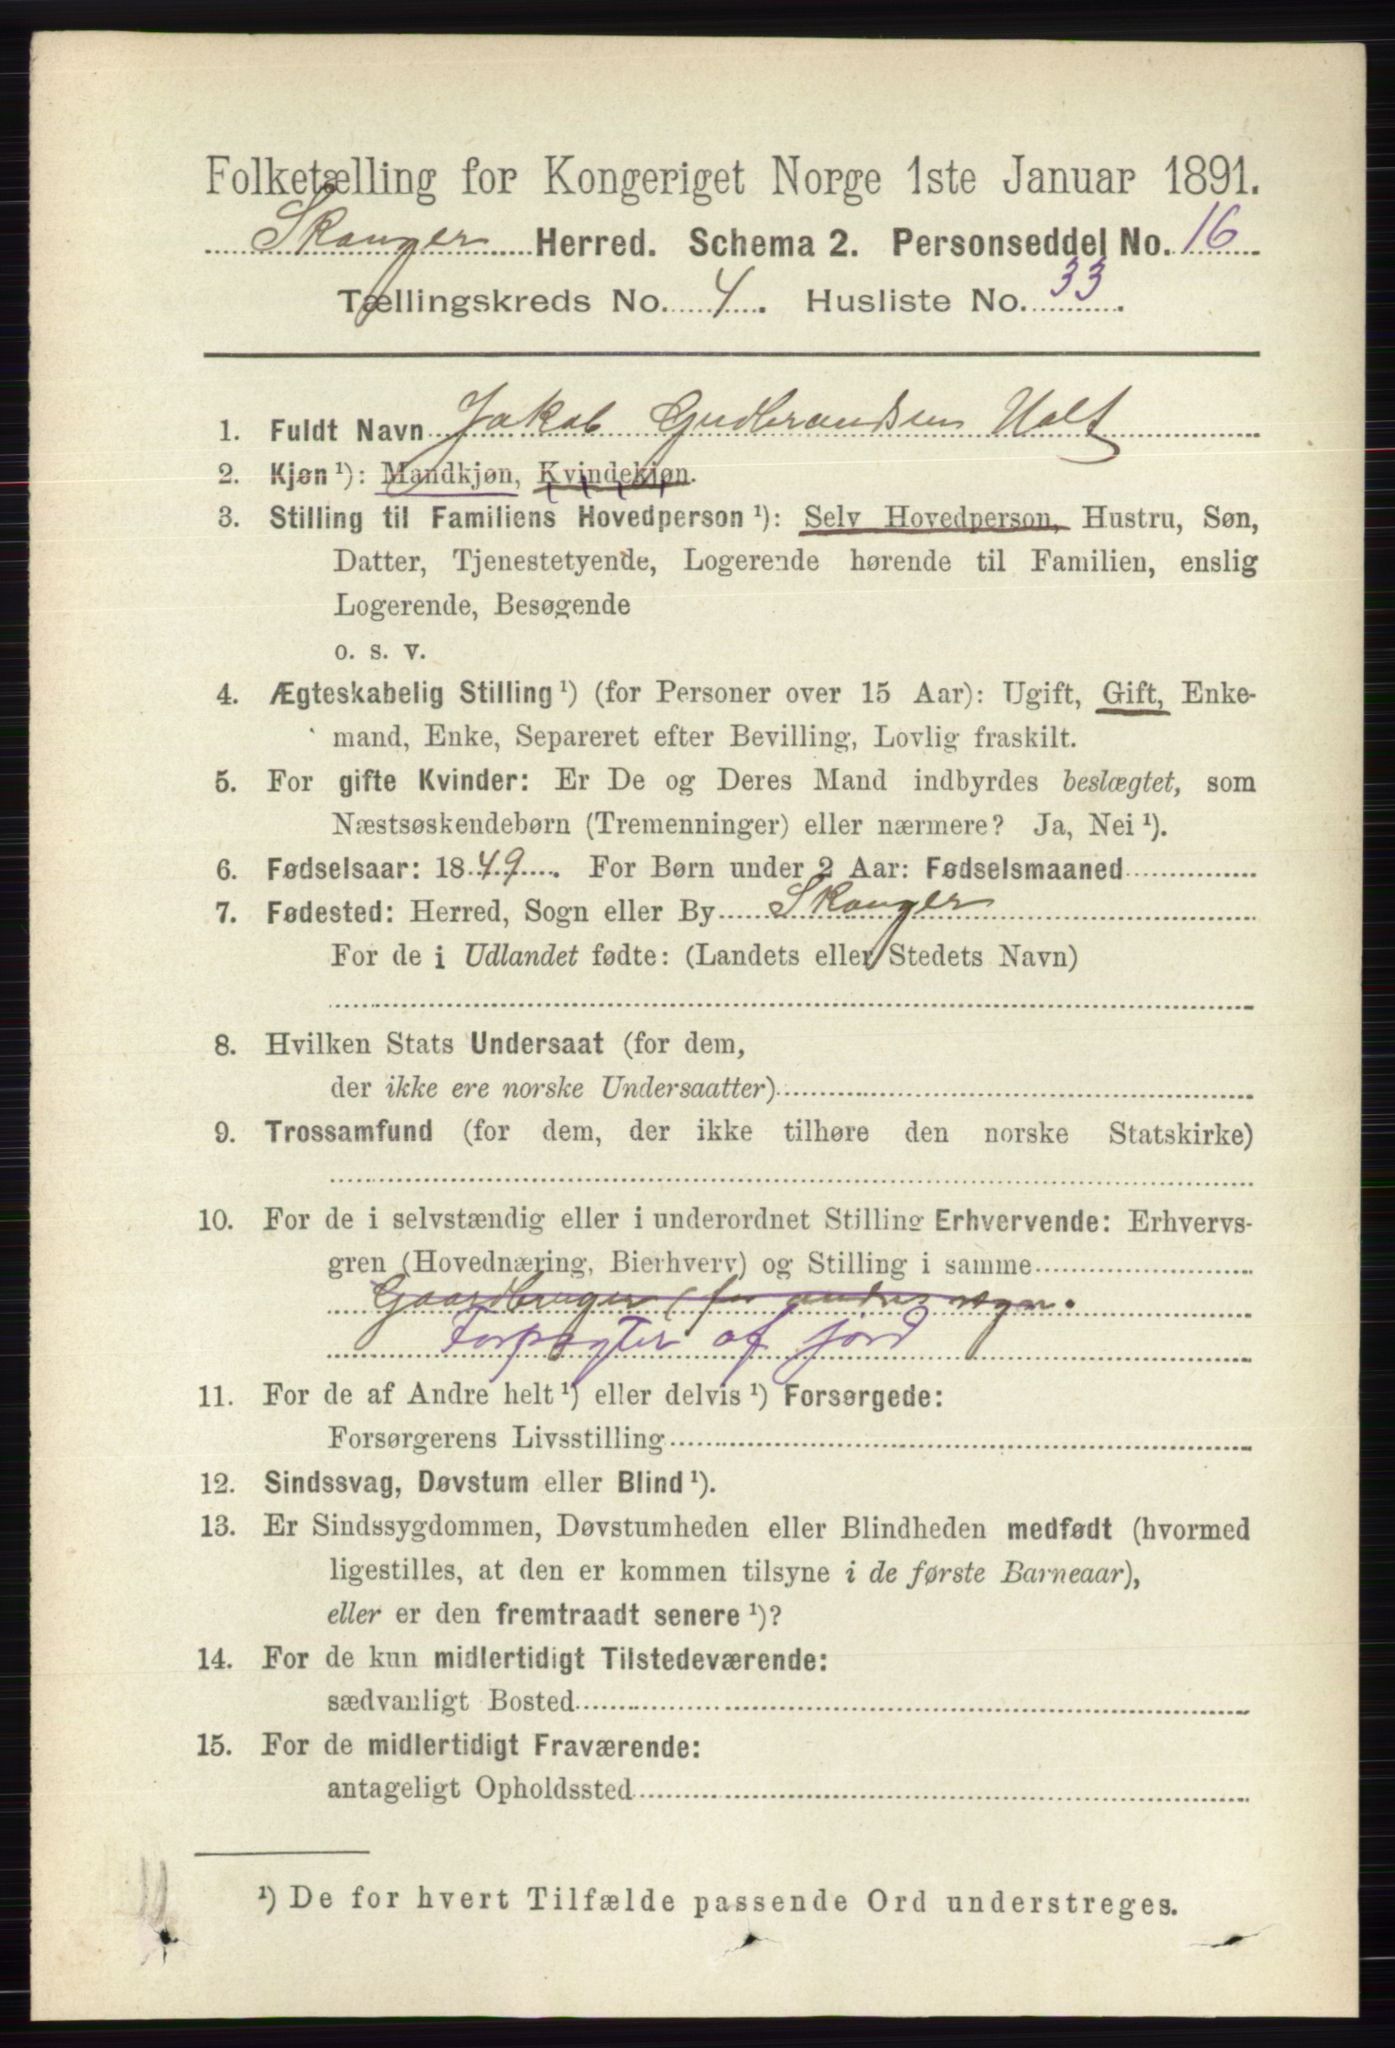 Folketælling for Kongeriget Norge 1ste Januar 1891.
Skauger Herred. Schema 2. Personseddel No. 16
Tællingskreds No. 4. Husliste No. 33.
1. Fuldt Navn Jakob Gudbrandsen Holt
2. Kjøn ¹): Mandkjøn, Kvindekjøn.
3. Stilling til Familiens Hovedperson ¹): Selv Hovedperson, Hustru, Søn,
Datter, Tjenestetyende, Logerende hørende til Familien, enslig
Logerende, Besøgende
o. s. v.
4. Ægteskabelig Stilling ¹) (for Personer over 15 Aar): Ugift, Gift, Enke-
mand, Enke, Separeret efter Bevilling, Lovlig fraskilt.
5. For gifte Kvinder: Er De og Deres Mand indbyrdes beslægtet, som
Næstsøskendebørn (Tremenninger) eller nærmere? Ja, Nei ¹).
6. Fødselsaar: 1849. For Børn under 2 Aar: Fødselsmaaned
7. Fødested: Herred, Sogn eller By Skauger
For de i Udlandet fødte: (Landets eller Stedets Navn)
8. Hvilken Stats Undersaat (for dem,
der ikke ere norske Undersaatter)
9. Trossamfund (for dem, der ikke tilhøre den norske Statskirke)
10. For de i selvstændig eller i underordnet Stilling Erhvervende: Erhvervs-
gren (Hovednæring, Bierhverv) og Stilling i samme
Gaardbruger (for andres regn.
Forpagter af jord
11. For de af Andre helt ¹) eller delvis ¹) Forsørgede:
Forsørgerens Livsstilling
12. Sindssvag, Døvstum eller Blind ¹).
13. Er Sindssygdommen, Døvstumheden eller Blindheden medfødt (hvormed
ligestilles, at den er kommen tilsyne i de første Barneaar),
eller er den fremtraadt senere ¹)?
14. For de kun midlertidigt Tilstedeværende:
sædvanligt Bosted
15. For de midlertidigt Fraværende:
antageligt Opholdssted
¹) De for hvert Tilfælde passende Ord understreges.